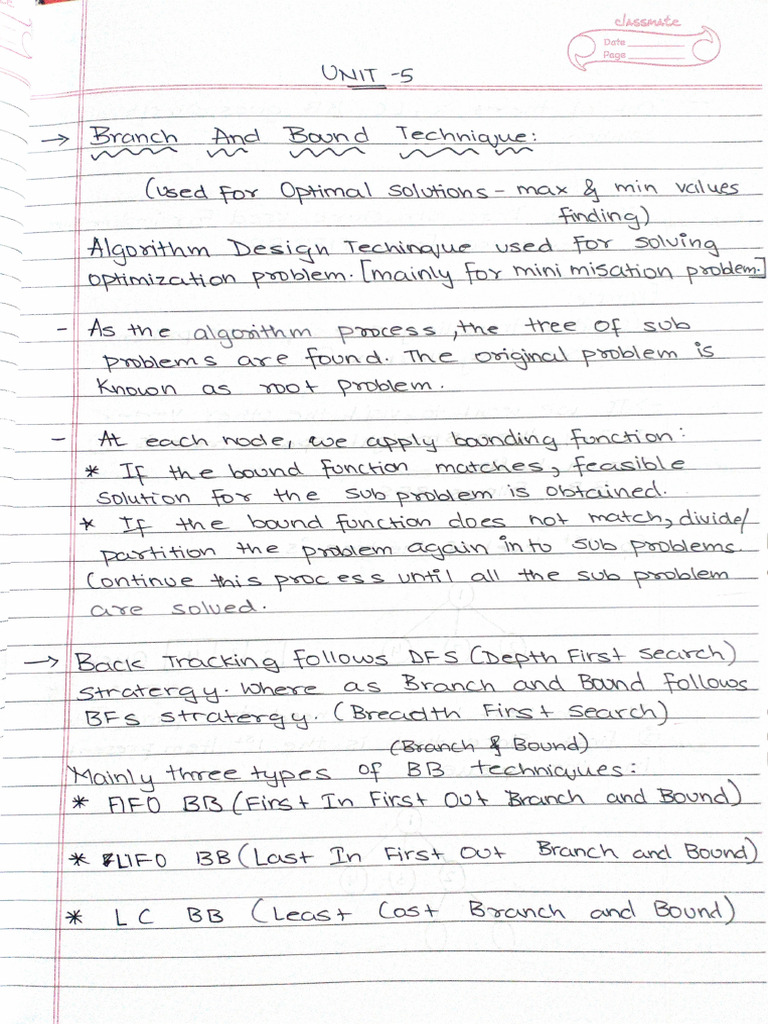 classmate
Date
Page
UNIT -5
→ Branch And Bound Technique:
(used for Optimal solutions - max & min values
finding)
Algorithm Design Techinque used for solving
optimization problem. [mainly for minimisation problem.]
- As the algorithm process, the tree of sub
problems are found. The original problem is
known as root problem.
- At each node, we apply bounding function:
* If the bound function matches, feasible
solution for the sub problem is obtained.
* If the bound function does not match, divide/
partition the problem again into sub problems.
Continue this process until all the sub problem
are solved.
→ Back Tracking follows DFS (Depth First Search)
stratergy. Where as Branch and Bound follows
BFS stratergy. (Breadth First Search)
(Branch & Bound)
Mainly three types of BB techniques:
* FIFO BB (First In First Out Branch and Bound)
* LIFO BB (Last In First Out Branch and Bound)
* LC BB (Least Cost Branch and Bound)